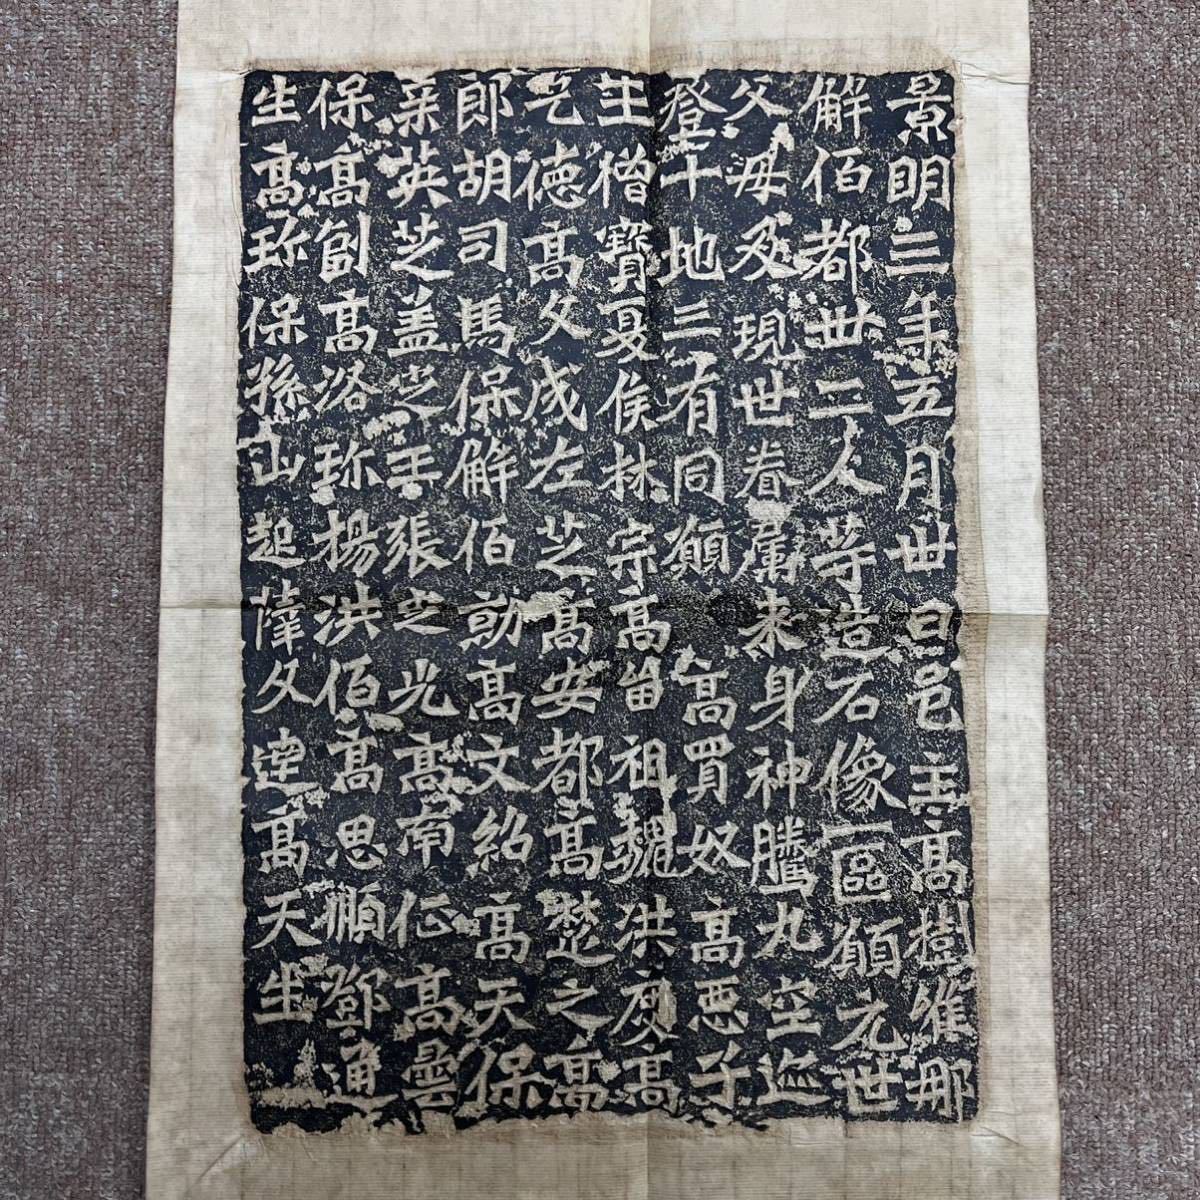 景明三年五月卅日邑主高樹唯那
解佰都卅二人等造石像一區願元世
父母及現世眷屬来身神騰九空迩
登十地三有同願高買奴高悪子
王僧寶夏侯林宗高留祖魏洪度高
乞德高文成左芝高安都高楚之高
郎胡司馬保解佰勍高文紹高天保
英芝盖芝王張之光高南伾高曇
保高副高洛珎楊洪佰高思順鄧通
生高珎保孫山起薛文達高天生